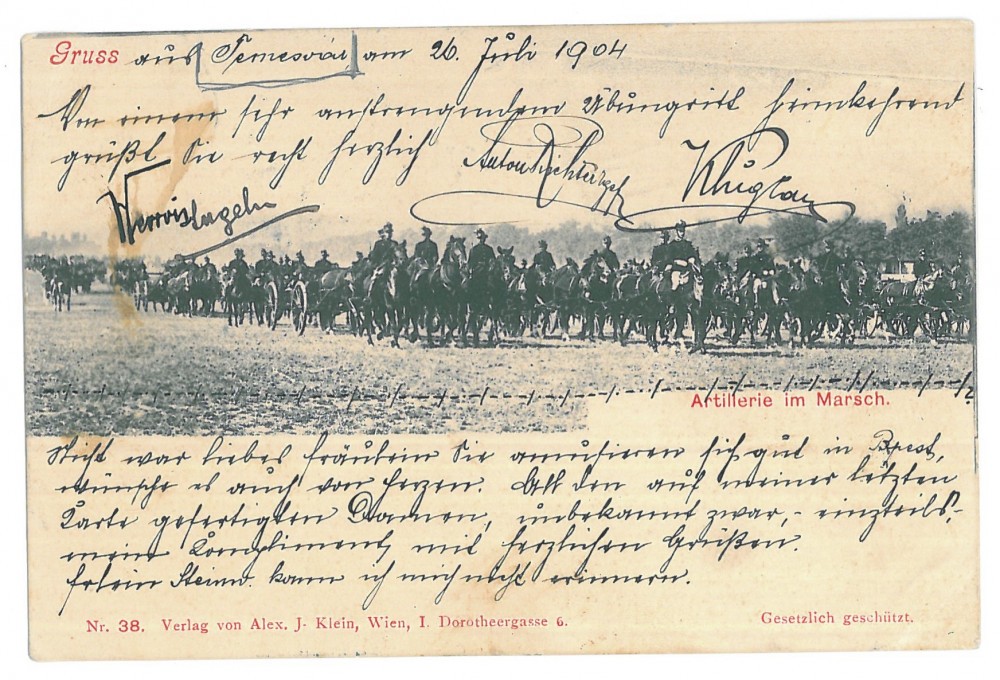 Gruss aus Temesvár am 26. Juli 1904
Von einem sehr anstrengendem Übungritt heimkehrend
grüßt Sie recht herzlich
Anton
Artillerie im Marsch.
war liebes Fräulein Sie amusieren sich gut in Bpest,
wünsche es auch von Herzen. All den auf meiner letzten
Karte gefertigten Damen, unbekannt zwar, - einzteils, -
mein Kompliment, mit herzlichen Grüßen.
kann ich mich nicht erinnern.
Nr. 38. Verlag von Alex. J. Klein, Wien, I. Dorotheergasse 6.
Gesetzlich geschützt.